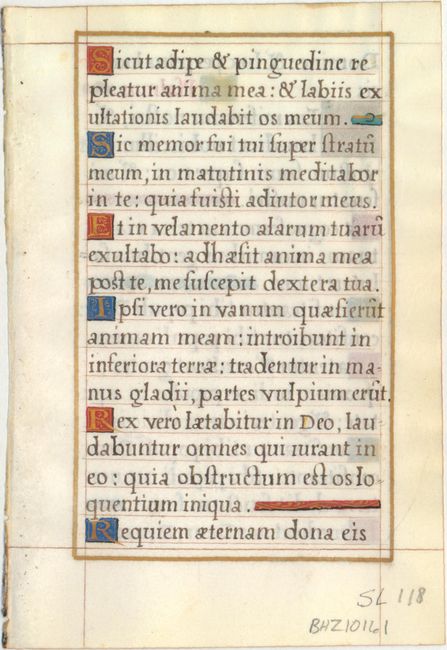 Sicut adipe & pinguedine re
pleatur anima mea: & labiis ex
ultationis laudabit os meum.
Sic memor fui tui super stratū
meum, in matutinis meditabor
in te: quia fuisti adiutor meus.
Et in velamento alarum tuarū
exultabo: adhæsit anima mea
post te, me suscepit dextera tua.
Ipsi vero in vanum quæsierūt
animam meam: introibunt in
inferiora terræ: tradentur in ma-
nus gladii, partes vulpium erūt.
Rex verò lætabitur in Deo, lau-
dabuntur omnes qui iurant in
eo: quia obstructum est os lo-
quentium iniqua.
Requiem æternam dona eis
SL 118
BHZ10116.1